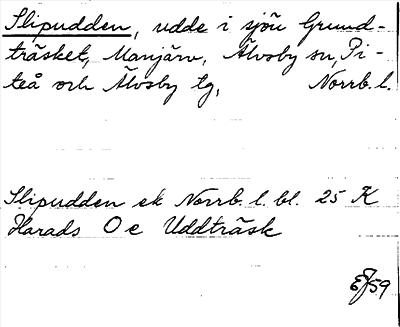 Slipudden, udde i sjön Grund-
träsket, Manjärv, Älvsby sn, Pi-
teå och Älvsby tg, Norrb. l.
Slipudden ek Norrb. l. bl. 25 K
Harads O e Uddträsk
59